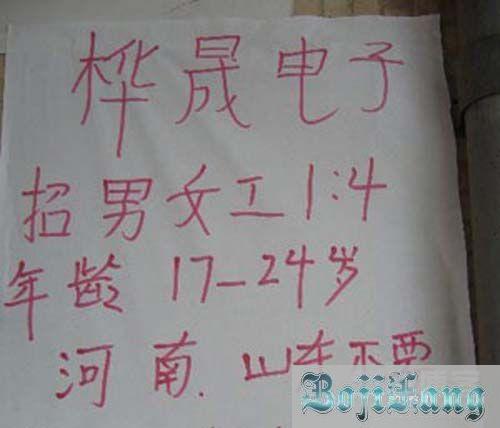 桦晟电子
招男女工1:4
年龄 17-24岁
河南.山东不要
BojiFang